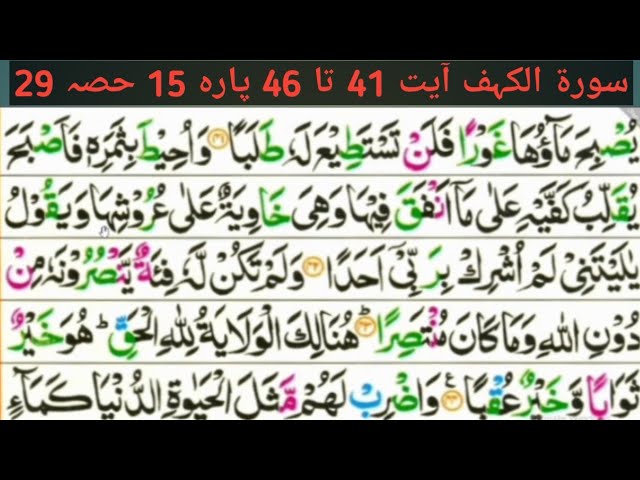 سورۃ الکہف آیت 41 تا 46 پارہ 15 حصہ 29
يُصْبِحَ مَآؤُهَا غَوْرًا فَلَنْ تَسْتَطِيْعَ لَهٗ طَلَبًا ﴿۴۱﴾ وَاُحِيْطَ بِثَمَرِهٖ فَاَصْبَحَ
يُقَلِّبُ كَفَّيْهِ عَلٰى مَاۤ اَنْفَقَ فِيْهَا وَهِىَ خَاوِيَةٌ عَلٰى عُرُوْشِهَا وَيَقُوْلُ
يٰلَيْتَنِىْ لَمْ اُشْرِكْ بِرَبِّىْۤ اَحَدًا ﴿۴۲﴾ وَلَمْ تَكُنْ لَّهٗ فِئَةٌ يَّنْصُرُوْنَهٗ مِنْ
دُوْنِ اللّٰهِ وَمَا كَانَ مُنْتَصِرًا ﴿۴۳﴾ؕ هُنَالِكَ الْوَلَايَةُ لِلّٰهِ الْحَقِّ ؕ هُوَ خَيْرٌ
ثَوَابًا وَّخَيْرٌ عُقْبًا ﴿۴۴﴾ع وَاضْرِبْ لَهُمْ مَّثَلَ الْحَيٰوةِ الدُّنْيَا كَمَآءٍ